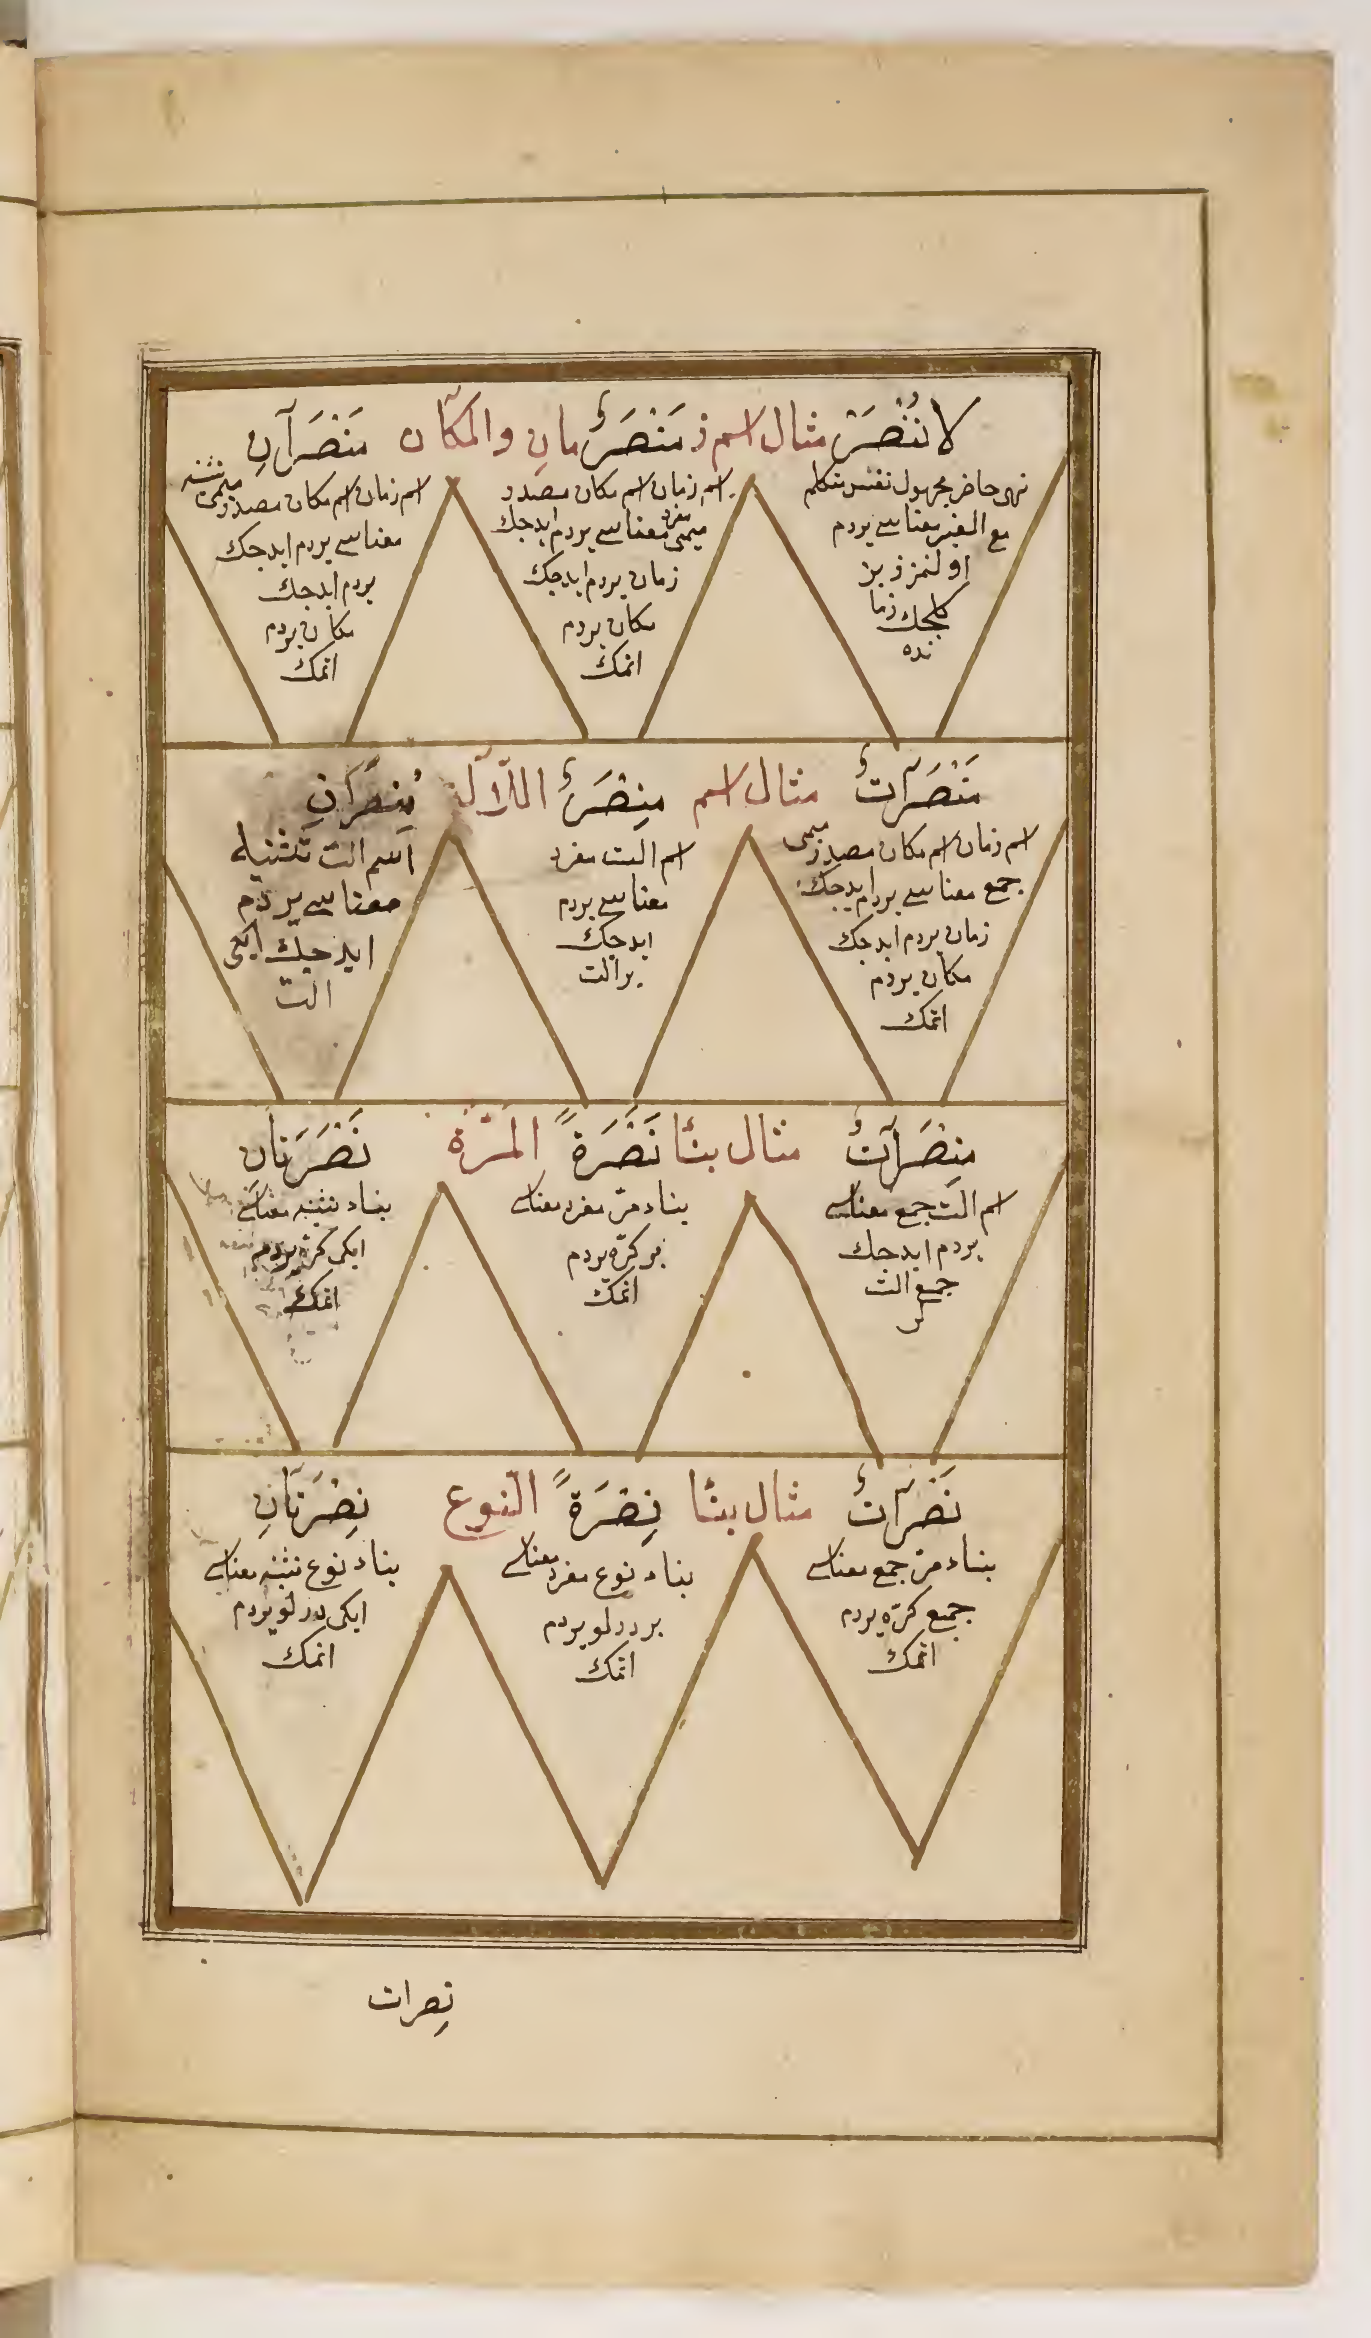 لَا نُنْصَرْ مثال اسم ز مَنْصَرٌ مانِ والمكآن مَنْصَرَآنِ
نهى حاضر مجهول نفس متكلم
مع الغير معناسى يردم
اولنمز ز بز
كلجك زما
نده
اسم زمان اسم مكان مصدر
ميمى مفرد معناسى يردم ايدجك
زمان يردم ايدجك
مكان يردم
اتمك
اسم زمان اسم مكان مصدر ميمى تثنيه
معناسى يردم ايدجك
يردم ايدجك
مكان يردم
اتمك
مَنْصَرَآتٌ مثال اسم مِنْصَرٌ اللآلة مِنْصَرَانِ
اسم زمان اسم مكان مصدر ميمى
جمع معناسى يردم ايدجك
زمان يردم ايدجك
مكان يردم
اتمك
اسم الت مفرد
معناسى يردم
ايدجك
بر الت
اسم الت تثنيه
معناسى يردم
ايدجك ايكى
الت
مِنْصَرَآتٌ مثال بنا نَصْرَةً المَرّة نَصْرَتَان
اسم الت جمع معناسى
يردم ايدجك
جمع الت
لر
بناء مرّ مفرد معناسى
بر كرّه يردم
اتمك
بناء تثنيه معناسى
ايكى كرّه يردم
اتمك
نَصَرَآتٌ مثال بنا نِصْرَةً النوع نِصْرَتَانِ
بناء مرّ جمع معناسى
جمع كرّه يردم
اتمك
بناء نوع مفرد معناسى
بر درلو يردم
اتمك
بناء نوع تثنيه معناسى
ايكى درلو يردم
اتمك
نِصرات